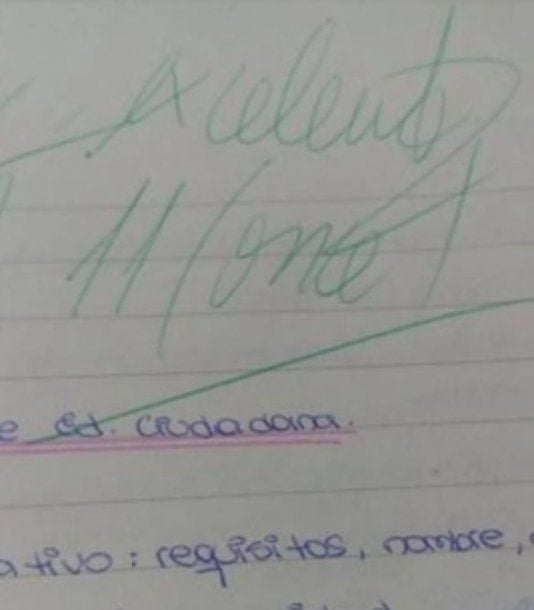 Excelente
11 (once)
e Ed. Ciudadana.
ativo: requisitos, nombre,